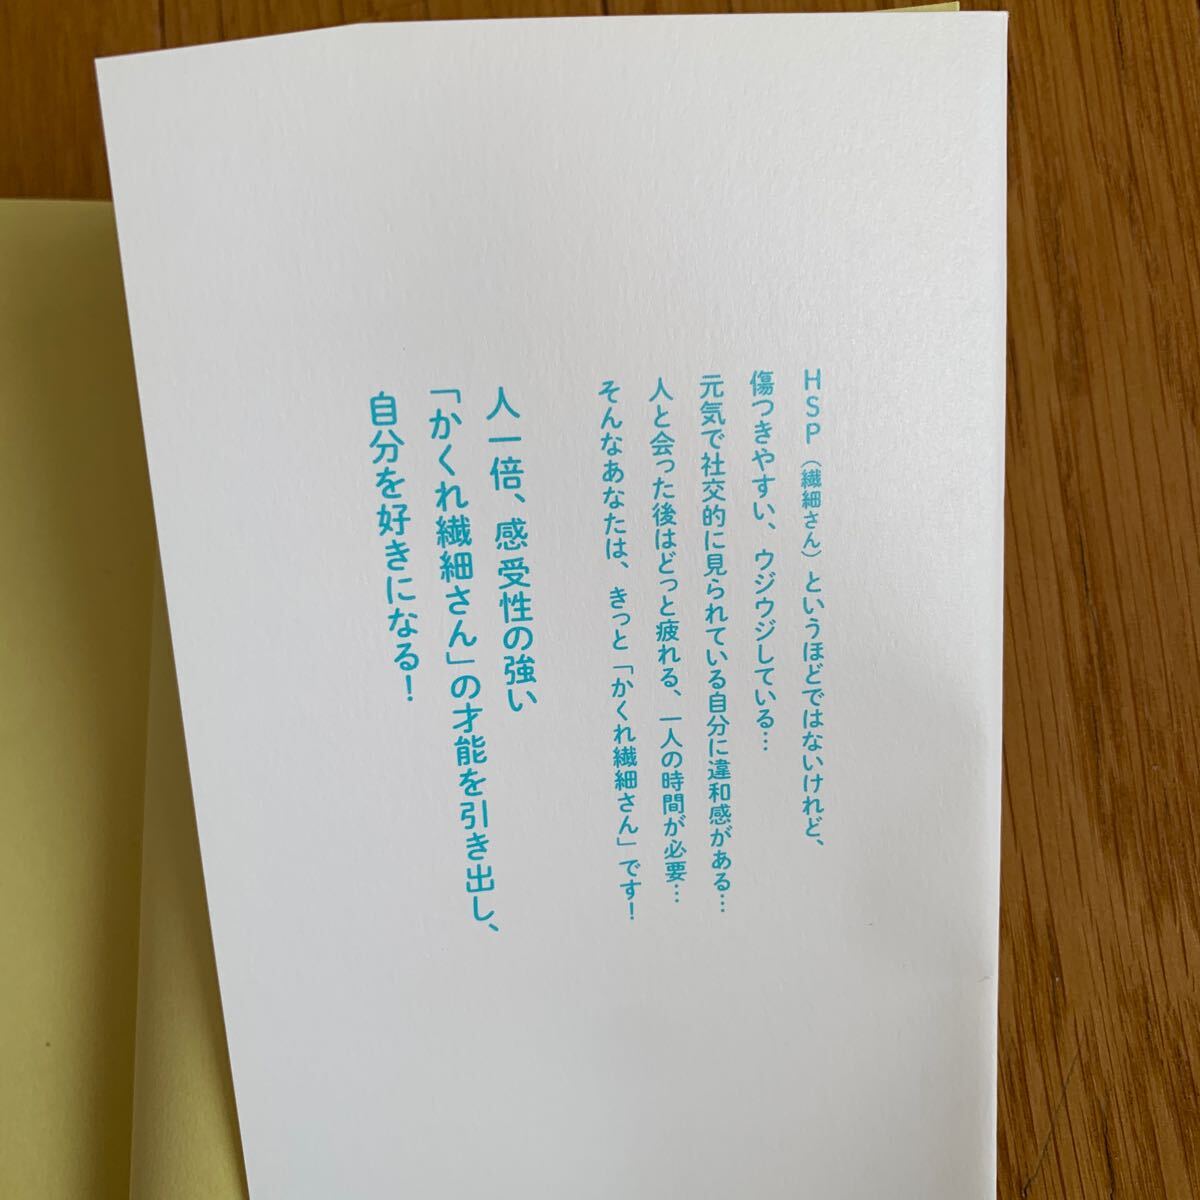 HSP（繊細さん）というほどではないけれど、
傷つきやすい、ウジウジしている…
元気で社交的に見られている自分に違和感がある…
人と会った後はどっと疲れる、一人の時間が必要…
そんなあなたは、きっと「かくれ繊細さん」です！
人一倍、感受性の強い
「かくれ繊細さん」の才能を引き出し、
自分を好きになる！